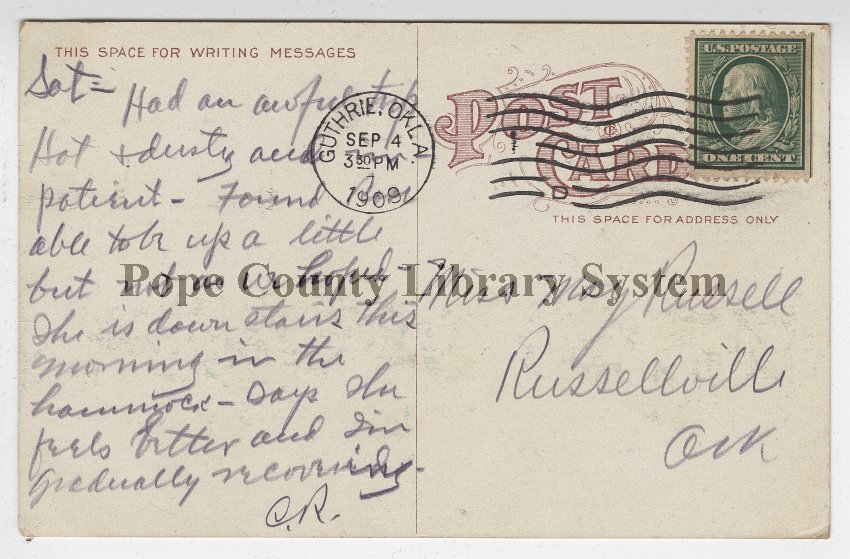 THIS SPACE FOR WRITING MESSAGES
Sat = Had an awful trip
Hot + dusty and
patient - Found
able to be up a little
but not as we hoped -
She is down stairs this
morning in the
hammock - Says she
feels better and I'm
gradually recovering -
C.R.
GUTHRIE, OKLA.
SEP 4
3 30 PM
1909
U.S. POSTAGE
ONE CENT
POST
CARD
THIS SPACE FOR ADDRESS ONLY
Miss May Russell
Russellville
Ark
Pope County Library System